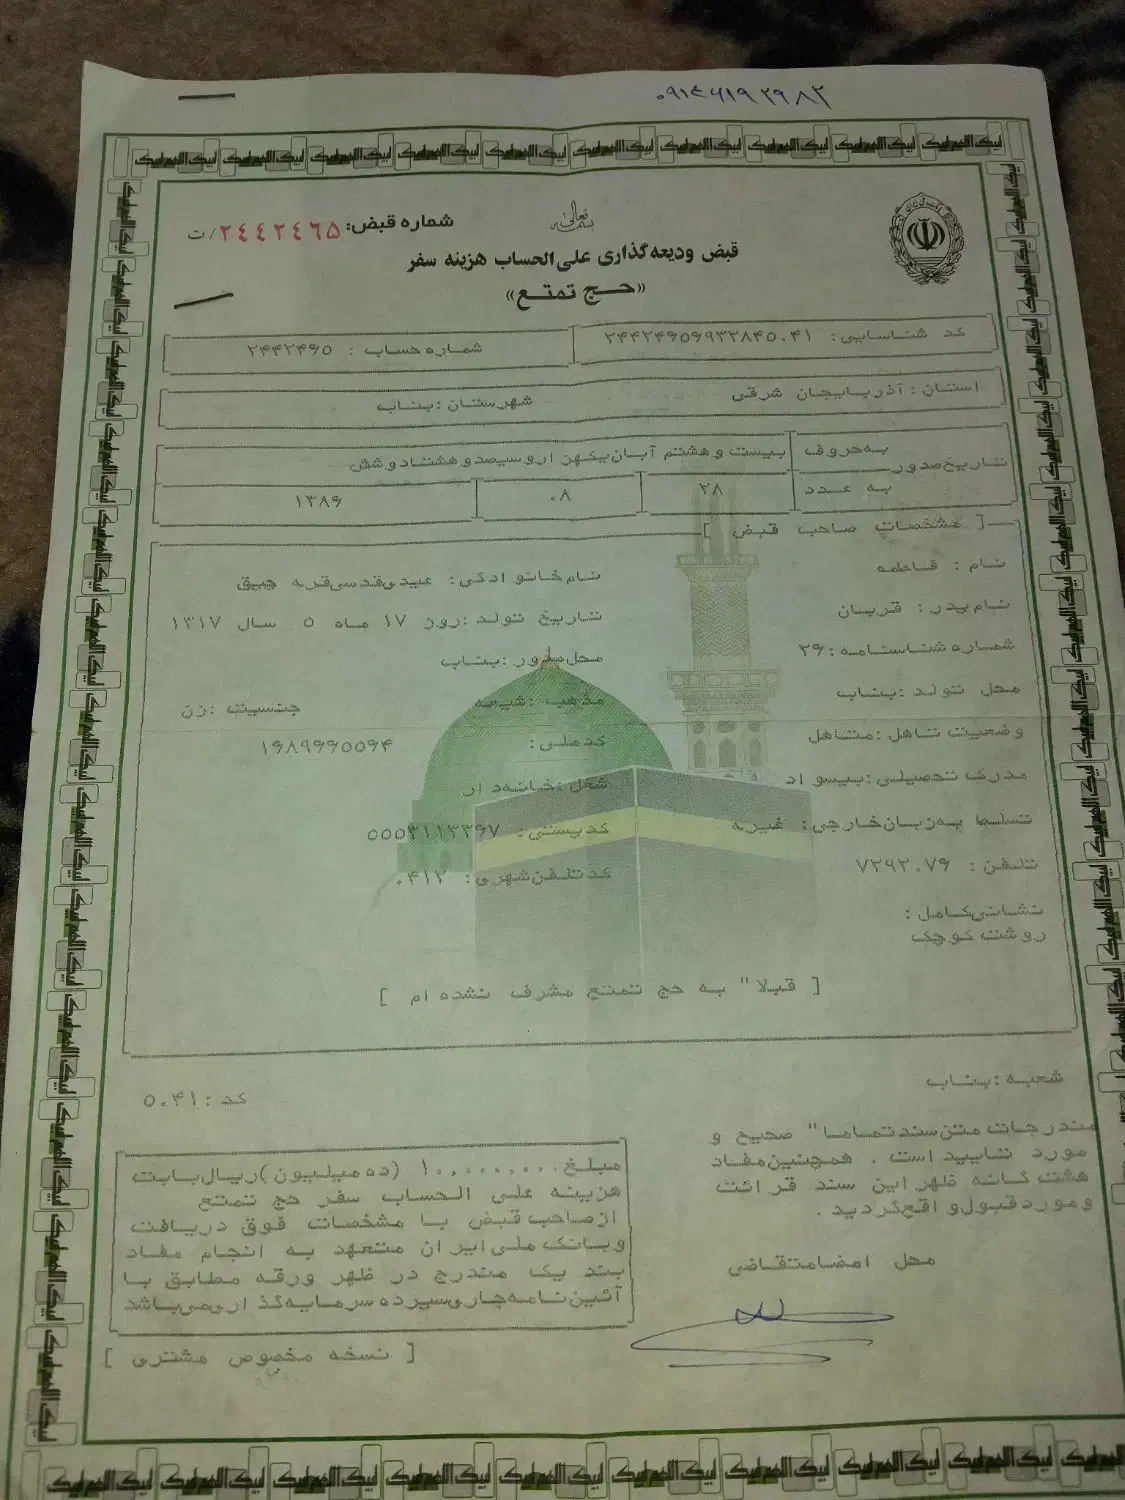 ۰۹۱۴۶۱۹۲۹۸۲
بسمه تعالی
شماره قبض: ۲۴۴۲٤٦۵/ت
قبض ودیعه‌گذاری علی‌الحساب هزینه سفر
«حج تمتع»
کد شناسایی: ۲۴۴۲۴۶۵۶۹۳۲۸۴۵۰۰۴۱
شماره حساب: ۲۴۴۲۴۶۵
استان: آذربایجان شرقی شهرستان: بناب
تاریخ صدور به حروف بیست و هشتم آبان یکهزاروسیصدوهشتادوشش
به عدد ۲۸ ۰۸ ۱۳۸۶
[ مشخصات صاحب قبض ]
نام: فاطمه نام خانوادگی: عبدی قدسی قره چبق
نام پدر: قربان تاریخ تولد: روز ۱۷ ماه ۵ سال ۱۳۱۷
شماره شناسنامه: ۲۶ محل صدور: بناب
محل تولد: بناب مذهب: شیعه جنسیت: زن
وضعیت تاهل: متاهل کدملی: ۱۶۸۹۹۹۰۵۹۴
مدرک تحصیلی: بیسواد شغل: خانه‌دار
تسلط به زبان خارجی: غیره کدپستی: ۵۵۵۳۱۱۳۳۶۷
تلفن: ۷۲۹۳۰۷۶ کدتلفن شهری: ۰۴۱۲
نشانی کامل:
روشت کوچک
[ قبلا" به حج تمتع مشرف نشده ام ]
شعبه: بناب
کد: ۵۰۴۱
مندرجات متن سند تماما" صحیح و
مورد تایید است. همچنین مفاد
هشت گانه ظهر این سند قرائت
و مورد قبول واقع گردید.
محل امضا متقاضی
مبلغ ۱۰,۰۰۰,۰۰۰ (ده میلیون) ریال بابت
هزینه علی الحساب سفر حج تمتع
از صاحب قبض با مشخصات فوق دریافت
و بانک ملی ایران متعهد به انجام مفاد
بند یک مندرج در ظهر ورقه مطابق با
آئین نامه جاری سپرده سرمایه گذاری می باشد
[ نسخه مخصوص مشتری ]
لبیک اللهم لبیک